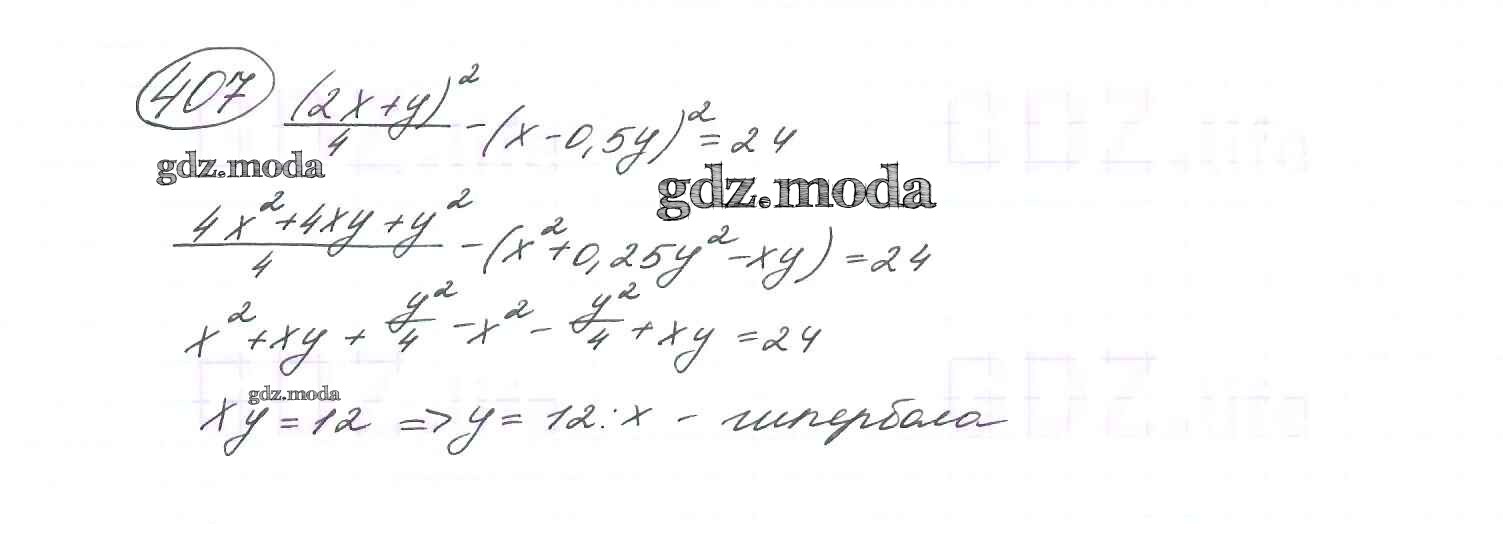 407 (2x+y)²/4 - (x-0,5y)² = 24
gdz.moda
gdz.moda
(4x²+4xy+y²)/4 - (x²+0,25y²-xy) = 24
x²+xy+y²/4 -x² - y²/4 + xy = 24
gdz.moda
xy = 12 => y = 12:x - гипербола